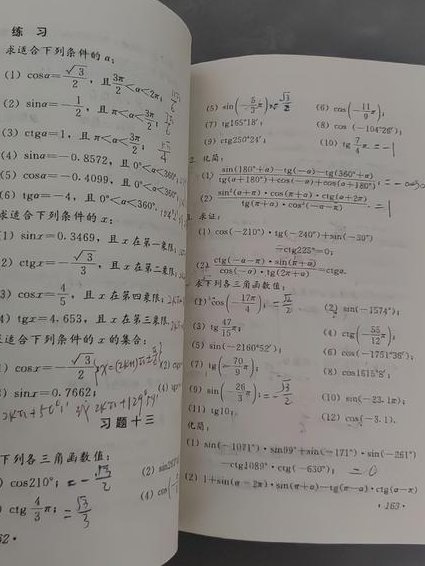 练 习
求适合下列条件的 α:
(1) cosα=√3/2, 且 3π/2<α<2π;
(2) sinα=-1/2, 且 π<α<3π/2;
(3) ctgα=1, 且 π<α<3π/2;
(4) sinα=-0.8572, 且 0°<α<360°;
(5) cosα=-0.4099, 且 0°<α<360°;
(6) tgα=-4, 且 0°<α<360°.
求适合下列条件的 x:
(1) sinx=0.3469, 且 x 在第一象限;
(2) ctgx=-√3/3, 且 x 在第二象限;
(3) cosx=4/5, 且 x 在第四象限;
(4) tgx=4.653, 且 x 在第三象限
适合下列条件的 x 的集合:
cosx=-√3/2
sinx=0.7662;
习题十三
下列各三角函数值:
cos210°; =-√3/2
(2) sin
ctg 4/3 π; =√3/3
(4) cos
62·
(5) sin(-5/3 π) √3/2
(6) cos(-11/9 π);
(7) tg165°18′;
(8) cos(-104°26′);
(9) ctg250°24′;
(10) tg 7/4 π. =-1
化简:
(1) sin(180°+α)-tg(-α)-tg(360°+α)/tg(α+180°)+cos(-α)+cos(α+180°)
(2) sin²(α+π)·cos(π+α)·ctg(α+2π)/tg(π+α)·cos³(-α-π). =1
求证:
(1) cos(-210°)·tg(-240°)+sin(-30°)
-ctg225°=0;
(2) ctg(-α-π)·sin(π+α)/cos(-α)·tg(2π+α)=ctgα.
求下列各三角函数值:
(1) cos(-17π/4); =√2/2
(2) sin(-1574°);
(3) tg 47/15 π;
(4) ctg(-55/12 π);
(5) sin(-2160°52′);
(6) cos(-1751°36′);
(7) tg(-70/9 π);
(8) cos1615°8′;
(9) sin(-26/3 π); =-√3/2
(10) sin(-23.1π);
(11) tg10;
(12) cos(-3.1).
化简:
(1) sin(-1071°)·sin99°+sin(-171°)·sin(-261°)
-ctg1089°·ctg(-630°); =0
(2) 1+sin(α-2π)·sin(π+α)-tg(π-α)·ctg(α-π)
·163·